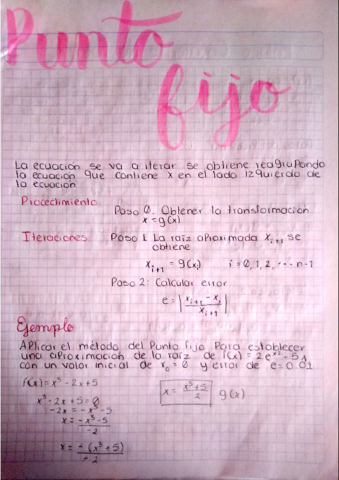 Punto
fijo
La ecuación se va a iterar se obtiene reagrupando
la ecuación que contiene x en el lado izquierdo de
la ecuación
Procedimiento
Paso 0. Obtener la transformación
x = g(x)
Iteraciones Paso 1. La raíz aproximada x_{i+1} se
obtiene
x_{i+1} = g(x_i) i = 0, 1, 2, --- n-1
Paso 2: Calcular error
e = |(x_{i+1} - x_i) / x_{i+1}|
Ejemplo
Aplicar el método del Punto fijo Para establecer
una aproximación de la raíz de f(x) = 2e^{x²} - 5
con un valor inicial de x_0 = 0 y error de e = 0.01
f(x) = x³ - 2x + 5
x³ - 2x + 5 = 0 x = (x³ + 5) / 2 g(x)
-2x = -x³ - 5
x = (-x³ - 5) / -2
x = -(x³ + 5) / -2